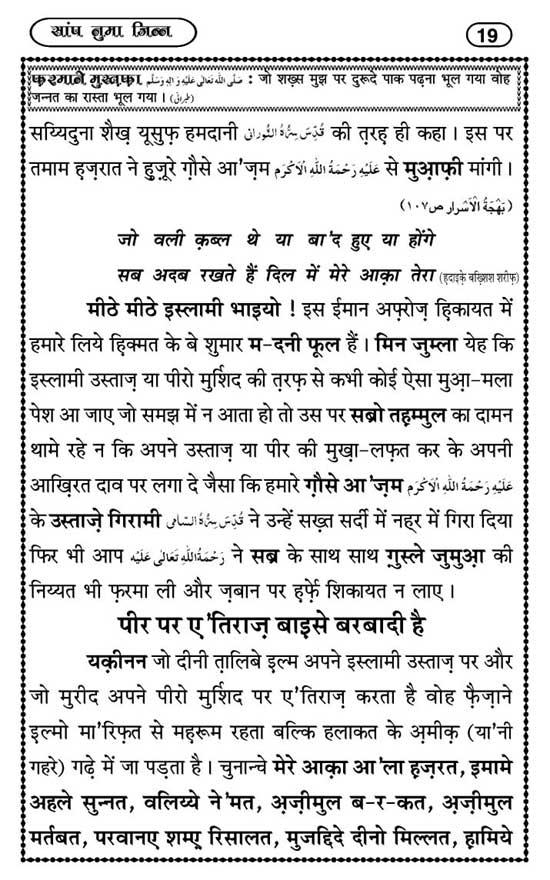 सांप नुमा जिन्न
19
फ़रमाने मुस्तफ़ा صَلَّى اللهُ تَعَالٰى عَلَيْهِ وَاٰلِهٖ وَسَلَّم : जो शख़्स मुझ पर दुरूदे पाक पढ़ना भूल गया वोह
जन्नत का रास्ता भूल गया । (طبرانی)
सय्यिदुना शैख़ यूसुफ़ हमदानी قُدِّسَ سِرُّهُ النُّوْرَانِی की त़रह़ ही कहा । इस पर
तमाम ह़ज़रात ने हुज़ूरे ग़ौसे आ'ज़म عَلَيْهِ رَحْمَةُ اللهِ الْاَكْرَم से मुआ़फ़ी मांगी ।
(بَهْجَةُ الْاَسْرَار ص١٠٧)
जो वली क़ब्ल थे या बा'द हुए या होंगे
सब अदब रखते हैं दिल में मेरे आक़ा तेरा (ह़दाइक़े बख़्शिश शरीफ़)
मीठे मीठे इस्लामी भाइयो ! इस ईमान अफ़्रोज़ ह़िकायत में
हमारे लिये ह़िक्मत के बे शुमार म-दनी फूल हैं । मिन जुम्ला येह कि
इस्लामी उस्ताज़ या पीरो मुर्शिद की त़रफ़ से कभी कोई ऐसा मुआ़-मला
पेश आ जाए जो समझ में न आता हो तो उस पर सब्रो तह़म्मुल का दामन
थामे रहे न कि अपने उस्ताज़ या पीर की मुख़ा-लफ़त कर के अपनी
आख़िरत दाव पर लगा दे जैसा कि हमारे ग़ौसे आ'ज़म عَلَيْهِ رَحْمَةُ اللهِ الْاَكْرَم
के उस्ताज़े गिरामी قُدِّسَ سِرُّهُ السَّامِی ने उन्हें सख़्त सर्दी में नहर में गिरा दिया
फिर भी आप رَحْمَةُ اللهِ تَعَالٰى عَلَيْه ने सब्र के साथ साथ ग़ुस्ले जुमुआ़ की
निय्यत भी फ़रमा ली और ज़बान पर ह़र्फ़े शिकायत न लाए ।
पीर पर ए'तिराज़ बाइसे बरबादी है
यक़ीनन जो दीनी त़ालिबे इल्म अपने इस्लामी उस्ताज़ पर और
जो मुरीद अपने पीरो मुर्शिद पर ए'तिराज़ करता है वोह फ़ैज़ाने
इल्मो मा'रिफ़त से महरूम रहता बल्कि हलाकत के अ़मीक़ (या'नी
गहरे) गढ़े में जा पड़ता है । चुनान्चे मेरे आक़ा आ'ला ह़ज़रत, इमामे
अहले सुन्नत, वलिय्ये ने'मत, अ़ज़ीमुल ब-र-कत, अ़ज़ीमुल
मर्तबत, परवानए शम्ए़ रिसालत, मुजद्दिदे दीनो मिल्लत, ह़ामिये